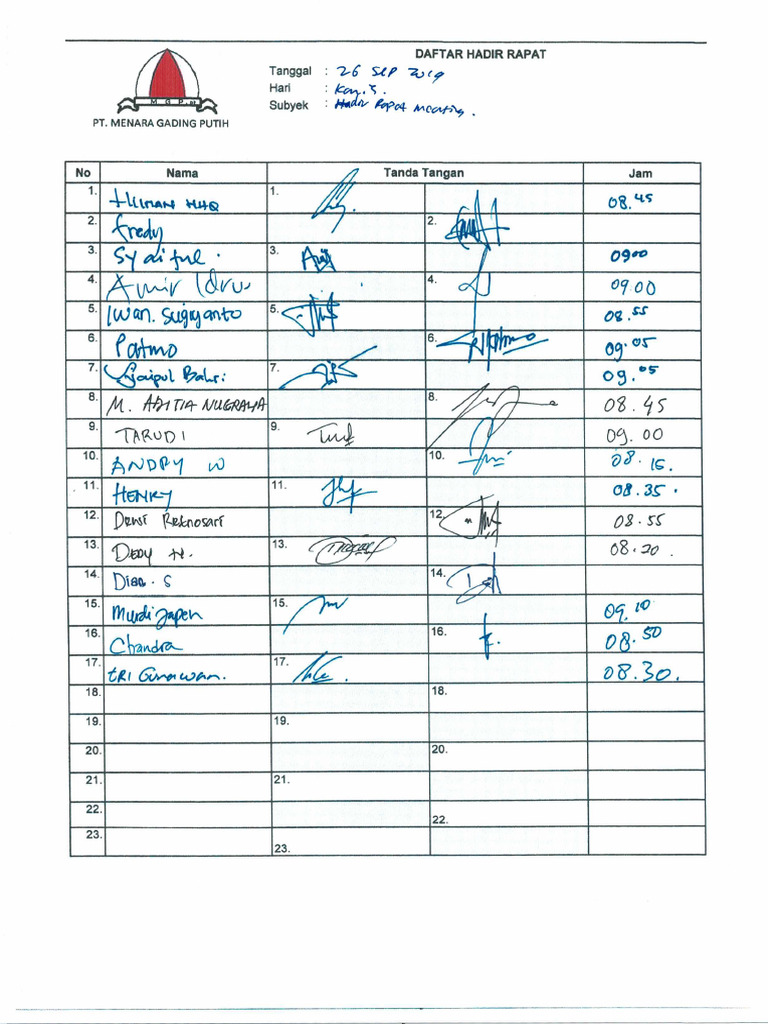 DAFTAR HADIR RAPAT
Tanggal : 26 Sep 2019
Hari : Kamis.
Subyek : Hadir Rapat Meeting.
M G P. pt
PT. MENARA GADING PUTIH
No Nama Tanda Tangan Jam
1. 1. 08.45
2. Fredy 2.
3. Syaiful. 3. 0900
4. Amir Idrus 4. 09.00
5. Iwan. Sugiyanto 5. 08.55
6. Patmo 6. 09.05
7. Syaipul Bahri 7. 09.05
8. M. ADITIA NUGRAHA 8. 08.45
9. TARUDI 9. 09.00
10. ANDRY W 10. 08.15.
11. HENKY 11. 08.35.
12. Dewi Retnosari 12. 08.55
13. DEDY H. 13. 08.20.
14. Dian. S 14.
15. Murdi Japen 15. 09.10
16. Chandra 16. 08.50
17. TRI Gunawan. 17. 08.30.
18. 18.
19. 19.
20. 20.
21. 21.
22. 22.
23. 23.